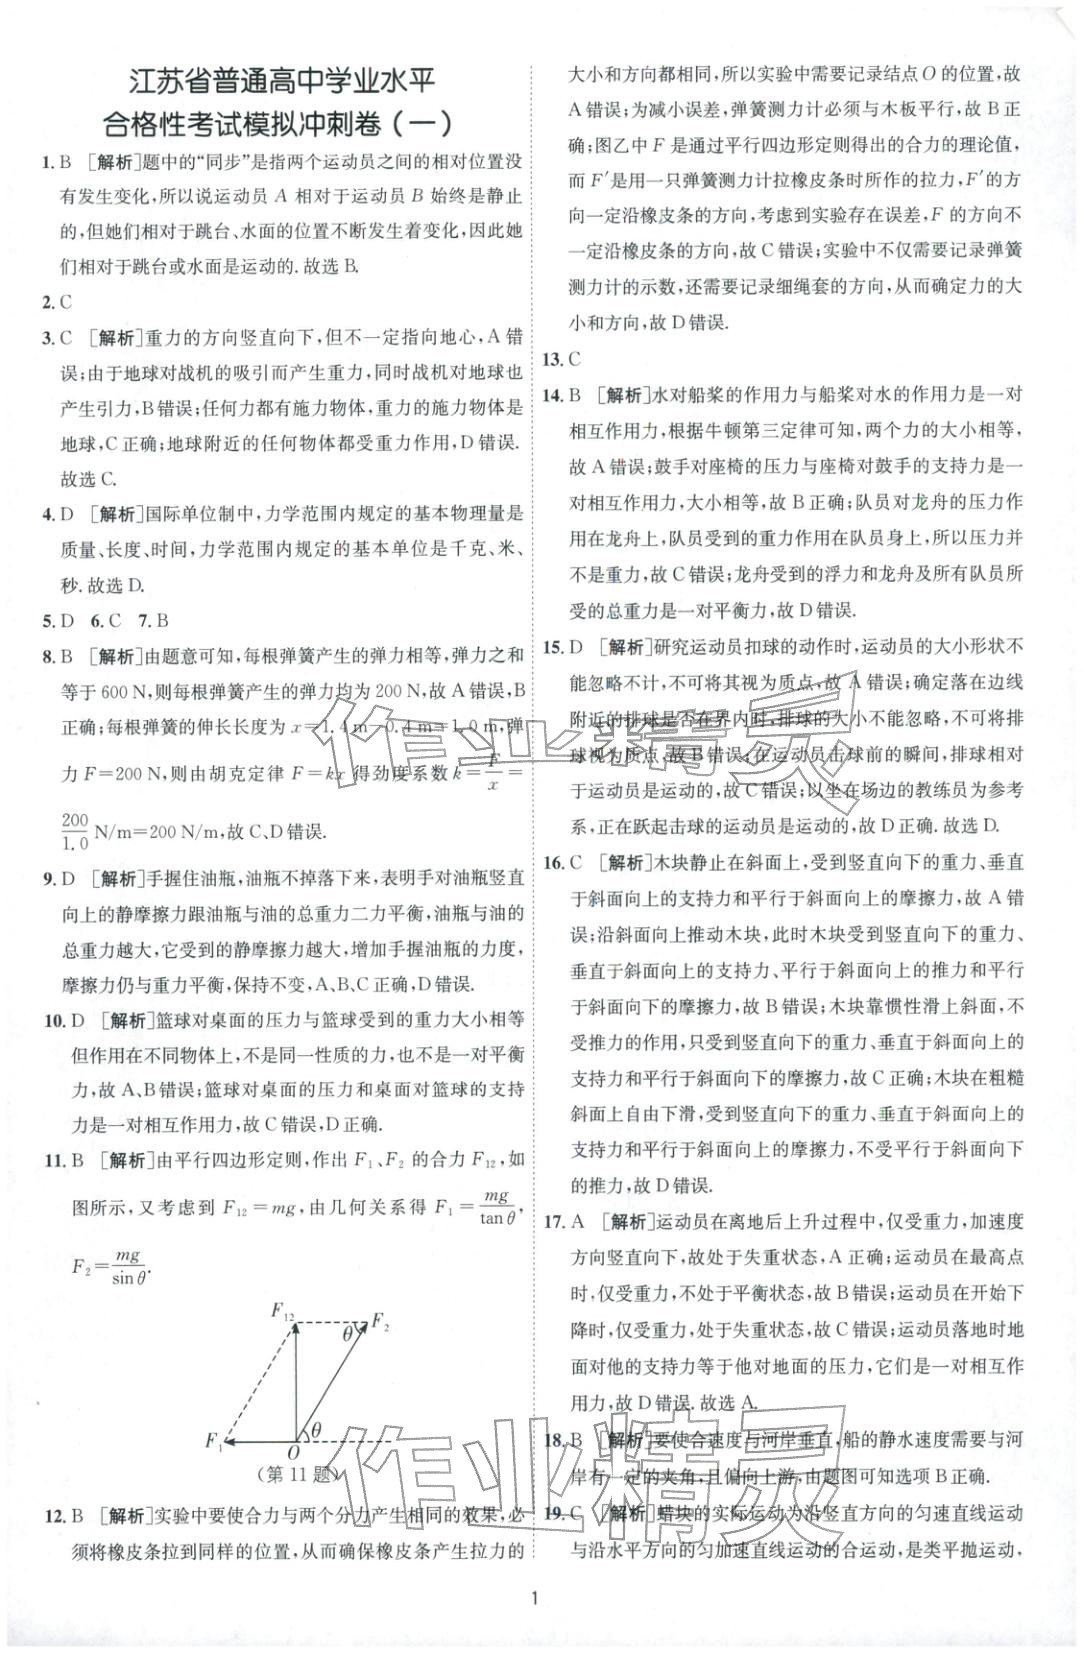 江苏省普通高中学业水平
合格性考试模拟冲刺卷(一)
1. B [解析]题中的“同步”是指两个运动员之间的相对位置没
有发生变化,所以说运动员 A 相对于运动员 B 始终是静止
的,但她们相对于跳台、水面的位置不断发生着变化,因此她
们相对于跳台或水面是运动的.故选B.
2. C
3. C [解析]重力的方向竖直向下,但不一定指向地心,A 错
误;由于地球对战机的吸引而产生重力,同时战机对地球也
产生引力,B错误;任何力都有施力物体,重力的施力物体是
地球,C正确;地球附近的任何物体都受重力作用,D错误.
故选C.
4. D [解析]国际单位制中,力学范围内规定的基本物理量是
质量、长度、时间,力学范围内规定的基本单位是千克、米、
秒.故选D.
5. D 6. C 7. B
8. B [解析]由题意可知,每根弹簧产生的弹力相等,弹力之和
等于600 N,则每根弹簧产生的弹力均为200 N,故A错误,B
正确;每根弹簧的伸长长度为 x=1.4 m-0.4 m=1.0 m,弹
力 F=200 N,则由胡克定律 F=kx 得劲度系数 k=F/x=
200/1.0 N/m=200 N/m,故C、D错误.
9. D [解析]手握住油瓶,油瓶不掉落下来,表明手对油瓶竖直
向上的静摩擦力跟油瓶与油的总重力二力平衡,油瓶与油的
总重力越大,它受到的静摩擦力越大,增加手握油瓶的力度,
摩擦力仍与重力平衡,保持不变,A、B、C正确,D错误.
10. D [解析]篮球对桌面的压力与篮球受到的重力大小相等
但作用在不同物体上,不是同一性质的力,也不是一对平衡
力,故A、B错误;篮球对桌面的压力和桌面对篮球的支持
力是一对相互作用力,故C错误,D正确.
11. B [解析]由平行四边形定则,作出 F₁、F₂ 的合力 F₁₂,如
图所示,又考虑到 F₁₂=mg,由几何关系得 F₁=mg/tanθ,
F₂=mg/sinθ.
F₁₂
F₂
θ
θ
F₁
O
(第11题)
12. B [解析]实验中要使合力与两个分力产生相同的效果,必
须将橡皮条拉到同样的位置,从而确保橡皮条产生拉力的
大小和方向都相同,所以实验中需要记录结点 O 的位置,故
A错误;为减小误差,弹簧测力计必须与木板平行,故B正
确;图乙中 F 是通过平行四边形定则得出的合力的理论值,
而 F′是用一只弹簧测力计拉橡皮条时所作的拉力,F′的方
向一定沿橡皮条的方向,考虑到实验存在误差,F 的方向不
一定沿橡皮条的方向,故C错误;实验中不仅需要记录弹簧
测力计的示数,还需要记录细绳套的方向,从而确定力的大
小和方向,故D错误.
13. C
14. B [解析]水对船桨的作用力与船桨对水的作用力是一对
相互作用力,根据牛顿第三定律可知,两个力的大小相等,
故A错误;鼓手对座椅的压力与座椅对鼓手的支持力是一
对相互作用力,大小相等,故B正确;队员对龙舟的压力作
用在龙舟上,队员受到的重力作用在队员身上,所以压力并
不是重力,故C错误;龙舟受到的浮力和龙舟及所有队员所
受的总重力是一对平衡力,故D错误.
15. D [解析]研究运动员扣球的动作时,运动员的大小形状不
能忽略不计,不可将其视为质点,故A错误;确定落在边线
附近的排球是否在界内时,排球的大小不能忽略,不可将排
球视为质点,故B错误;在运动员击球前的瞬间,排球相对
于运动员是运动的,故C错误;以坐在场边的教练员为参考
系,正在跃起击球的运动员是运动的,故D正确.故选D.
16. C [解析]木块静止在斜面上,受到竖直向下的重力、垂直
于斜面向上的支持力和平行于斜面向上的摩擦力,故A错
误;沿斜面向上推动木块,此时木块受到竖直向下的重力、
垂直于斜面向上的支持力、平行于斜面向上的推力和平行
于斜面向下的摩擦力,故B错误;木块靠惯性滑上斜面,不
受推力的作用,只受到竖直向下的重力、垂直于斜面向上的
支持力和平行于斜面向下的摩擦力,故C正确;木块在粗糙
斜面上自由下滑,受到竖直向下的重力、垂直于斜面向上的
支持力和平行于斜面向上的摩擦力,不受平行于斜面向下
的推力,故D错误.
17. A [解析]运动员在离地后上升过程中,仅受重力,加速度
方向竖直向下,故处于失重状态,A正确;运动员在最高点
时,仅受重力,不处于平衡状态,故B错误;运动员在开始下
降时,仅受重力,处于失重状态,故C错误;运动员落地时地
面对他的支持力等于他对地面的压力,它们是一对相互作
用力,故D错误.故选A.
18. B [解析]要使合速度与河岸垂直,船的静水速度需要与河
岸有一定的夹角,且偏向上游,由题图可知选项B正确.
19. C [解析]蜡块的实际运动为沿竖直方向的匀速直线运动
与沿水平方向的匀加速直线运动的合运动,是类平抛运动,
1
作业精灵
作业精灵